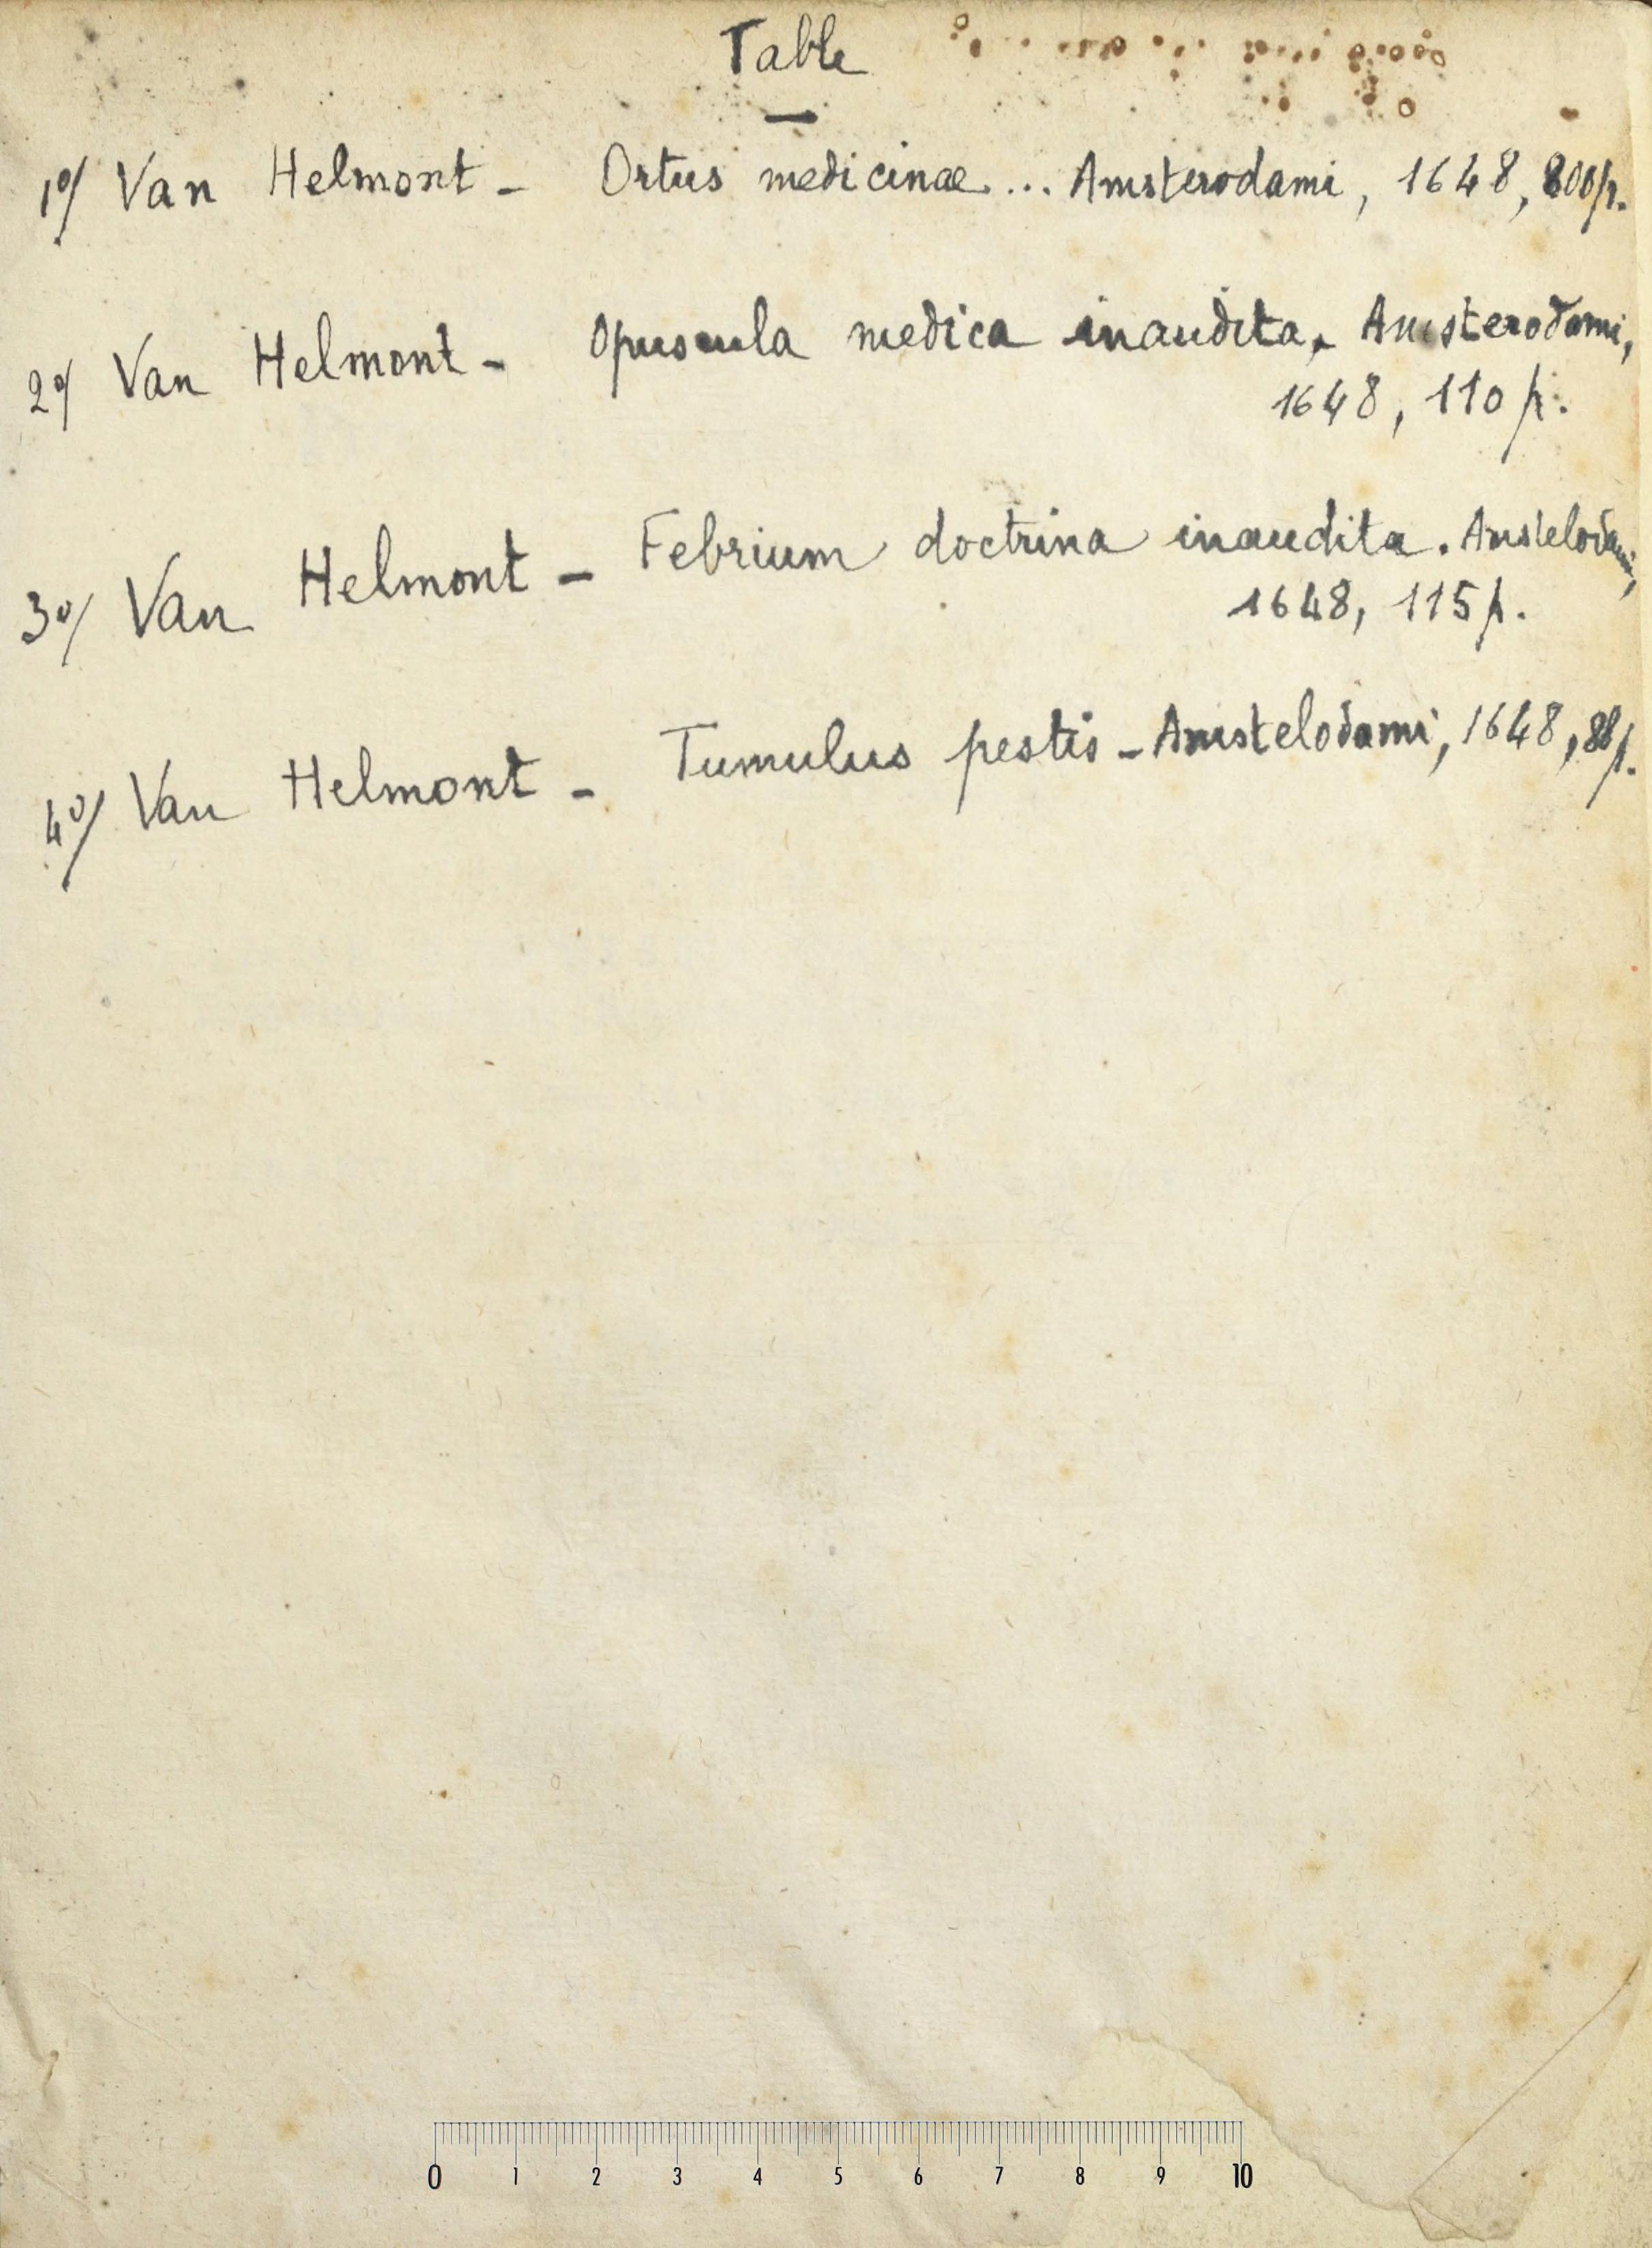 Table
1°/ Van Helmont - Ortus medicinae ... Amsterodami, 1648, 800 p.
2°/ Van Helmont - Opuscula medica inaudita. Amsterodami,
1648, 110 p.
3°/ Van Helmont - Febrium doctrina inaudita. Amstelodami,
1648, 115 p.
4°/ Van Helmont - Tumulus pestis - Amstelodami, 1648, 88 p.
0 1 2 3 4 5 6 7 8 9 10